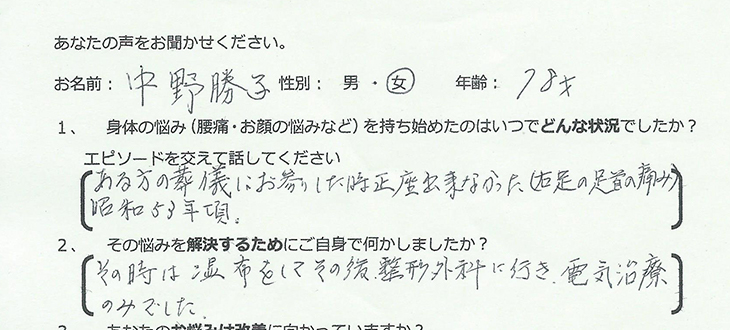 あなたの声をお聞かせください。
お名前： 中野勝子 性別： 男 ・ 女 年齢： 78才
１、 身体の悩み（腰痛・お顔の悩みなど）を持ち始めたのはいつでどんな状況でしたか？
エピソードを交えて話してください
ある方の葬儀にお参りした時正座出来なかった（右足の足首の痛み）
昭和53年頃。
２、 その悩みを解決するためにご自身で何かしましたか？
その時は湿布をしてその後、整形外科に行き、電気治療
のみでした。
３、 あなたのお悩みは改善に向かっていますか？